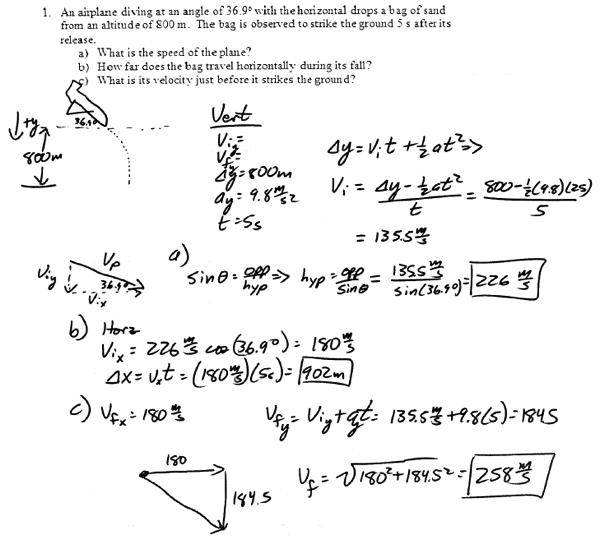 1. An airplane diving at an angle of 36.9° with the horizontal drops a bag of sand
from an altitude of 800 m. The bag is observed to strike the ground 5 s after its
release.
a) What is the speed of the plane?
b) How far does the bag travel horizontally during its fall?
c) What is its velocity just before it strikes the ground?
36.9°
↓+y
800m
Vert
Viy=
Vfy=
Δy=800m
ay= 9.8 m/s²
t=5s
Δy=Vit+½at²=>
Vi = (Δy-½at²)/t = (800-½(9.8)(25))/5
= 135.5 m/s
Vp
Viy
36.9°
Vix
a)
sinθ = opp/hyp => hyp = opp/sinθ = 135.5 m/s / sin(36.9°) = 226 m/s
b) Horz
Vix = 226 m/s cos(36.9°) = 180 m/s
Δx = Vxt = (180 m/s)(5s) = 902m
c) Vfx = 180 m/s
Vfy = Viy+ayt = 135.5 m/s +9.8(5)=184.5
180
184.5
Vf = √180²+184.5² = 258 m/s